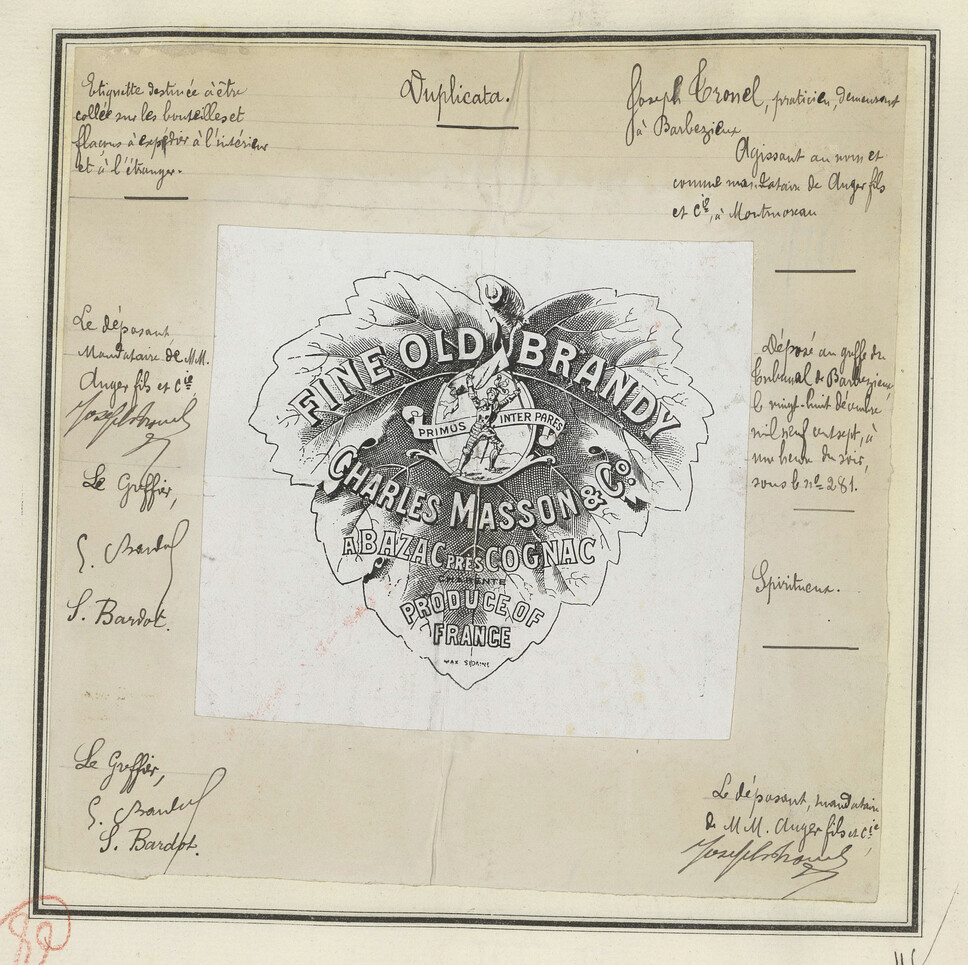 Etiquette destinée à être
collée sur les bouteilles et
flacons à expédier à l'intérieur
et à l'étranger.
Duplicata.
Joseph Tronel, praticien, demeurant
à Barbezieux
Agissant au nom et
comme mandataire de Auger fils
et Cie, à Montmoreau
Le déposant,
Mandataire de MM.
Auger fils et Cie
Le Greffier,
S. Bardot.
FINE OLD BRANDY
PRIMUS INTER PARES
CHARLES MASSON & Co.
A BAZAC PRÈS COGNAC
CHARENTE
PRODUCE OF
FRANCE
Déposé au greffe du
Tribunal de Barbezieux,
le vingt-huit décembre
mil neuf cent sept, à
une heure du soir,
sous le no 281.
Spiritueux.
Le Greffier,
S. Bardot.
Le déposant, mandataire
de MM. Auger fils et Cie,